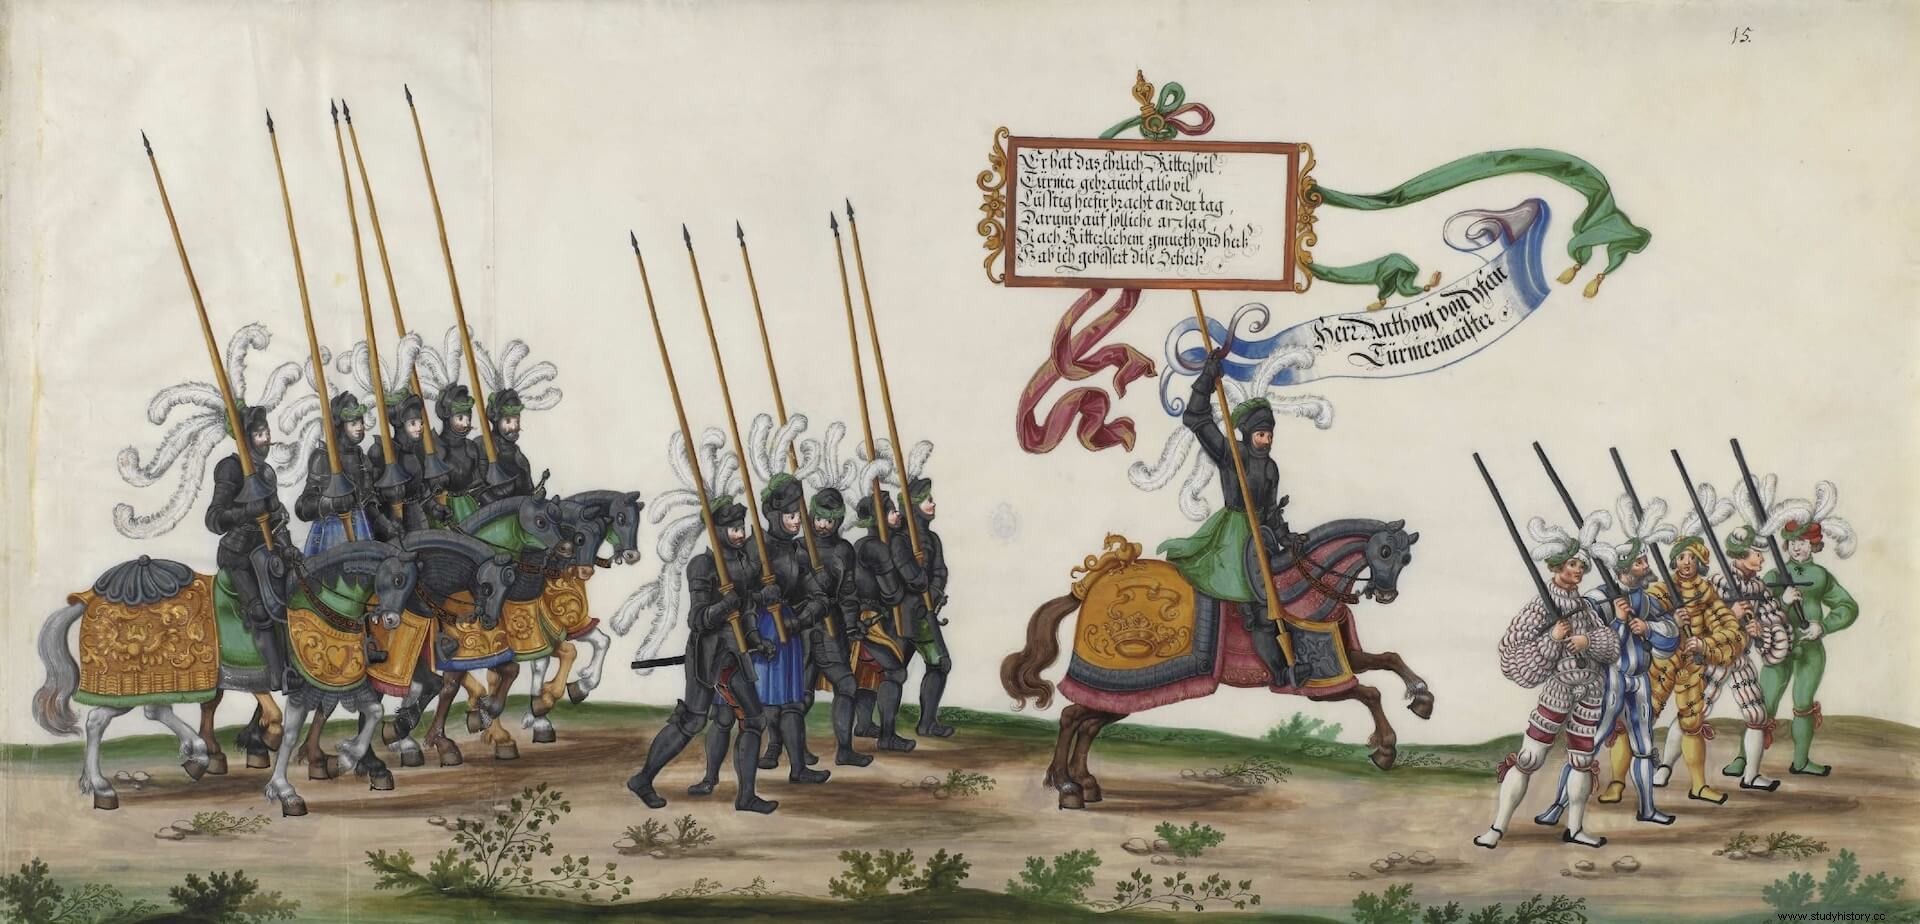 15.
Er hat das ehrlich Ritterspil,
Türnier gebraücht also vil,
Lüsstig herfür bracht an den tag,
Darumb auf solliche anlag,
Nach Ritterlichem gmueth vnd herz,
Hab ich gebessert dise Scherz.
Herr Anthonj von Yfan
Türniermaister.
www.studyhistory.cc